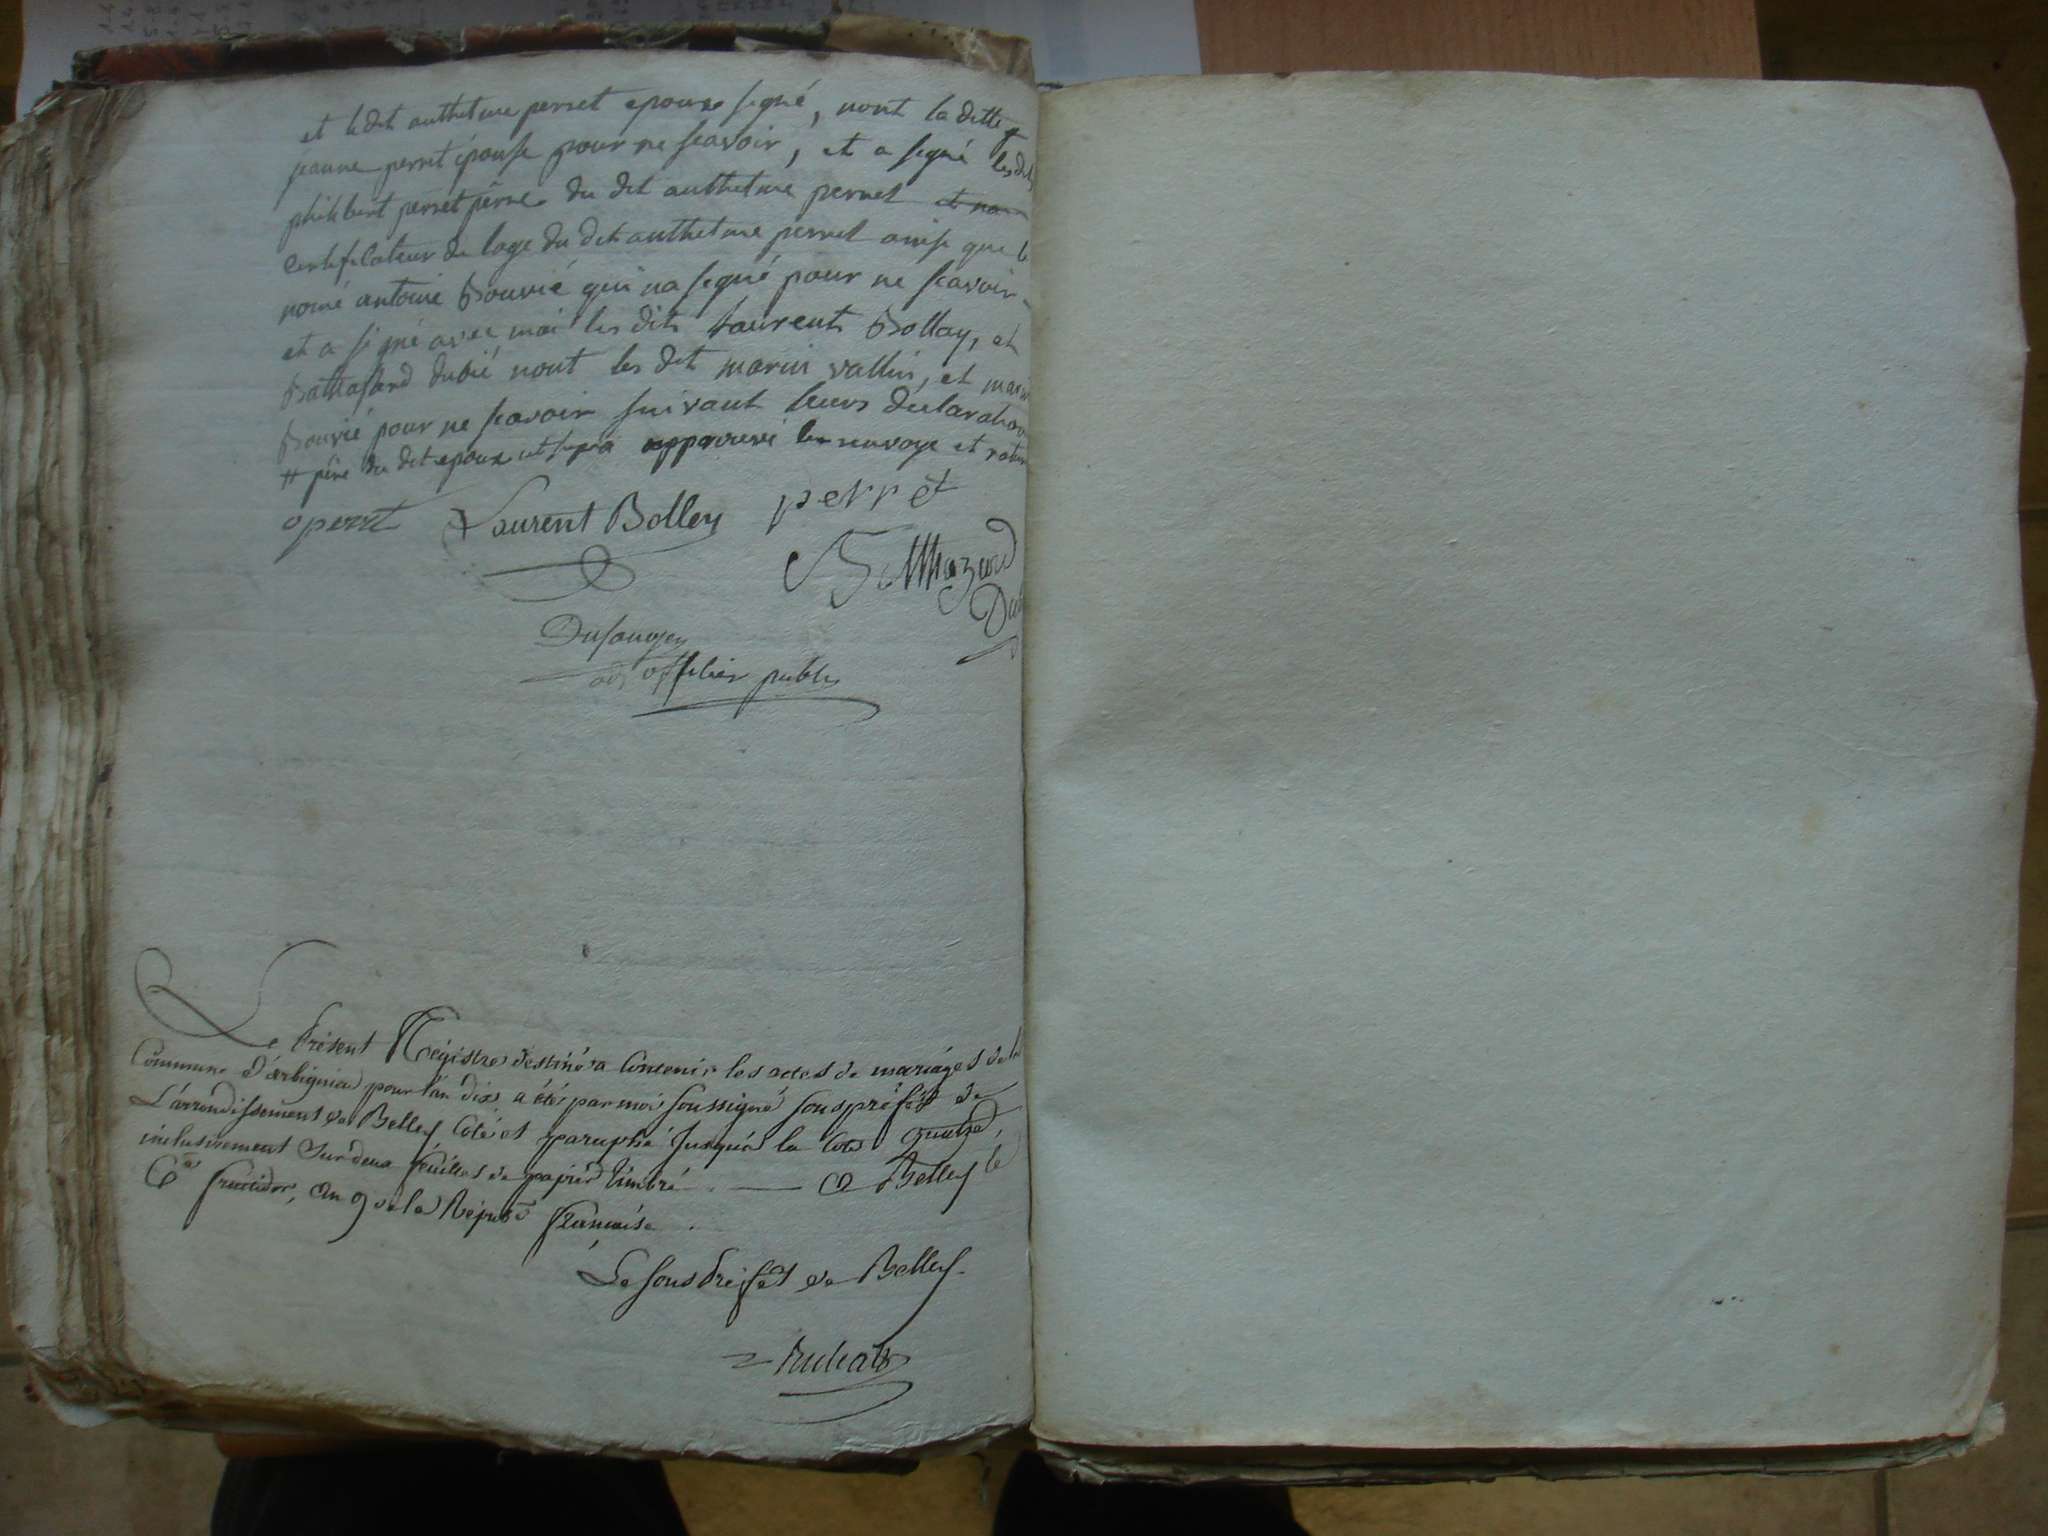 et ledit anthelme perret epoux signé, nont la ditte
jeanne perret épouse pour ne scavoir, et a signé les dits
philibert perret pere du dit anthelme perret et
certificateur de lage du dit anthelme perret ainsi que le
nomé antoine Bouvié qui na signé pour ne scavoir
et a signé avec moi les dits Laurent Bollay, et
Balthasard dubié nont les dit marin vallin, et
Bouvié pour ne scavoir suivant leurs declaration
# père du dit epoux approuvé le renvoye et
perret Laurent Bolley perret
Balthazard
officier public
Le Présent Régistre destiné a Contenir les actes de mariages de la
Commune d'arbignieu pour l'an dix a été par moi soussigné sous préfet de
L'arrondissement de Belley Coté et paraphé jusqu'a la Cote quatre,
inclusivement sur deux feuilles de papier timbré. — a Belley le
6e fructidor, an 9 de la Répub. française.
Le sous Préfet de Belley.